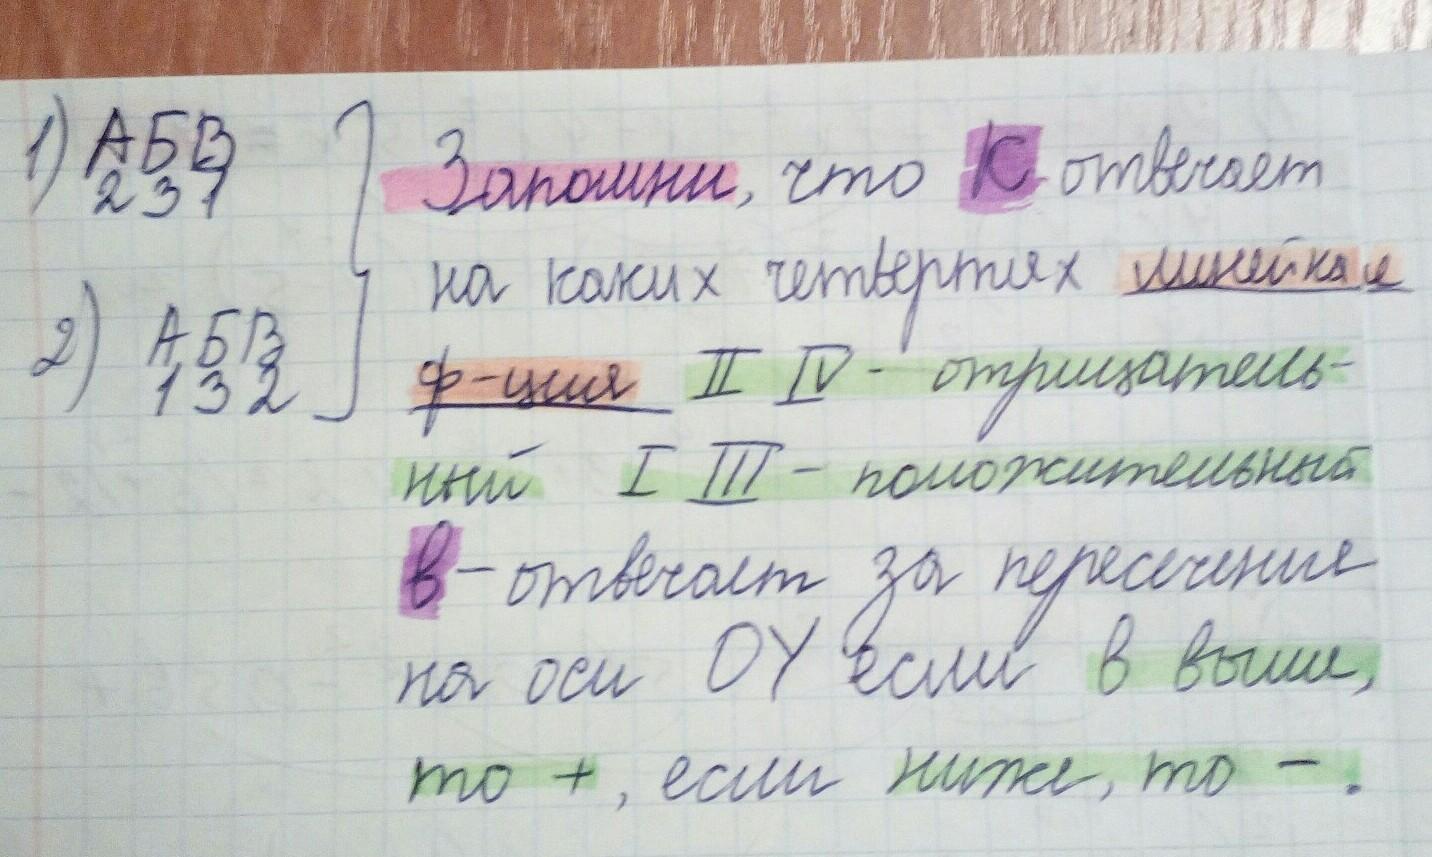 1) АБВ
231
2) АБВ
132
Запомни, что К отвечает
на каких четвертях линейная
ф-ция II IV - отрицатель-
ный I III - положительный
в - отвечает за пересечение
на оси OY если в выше,
то +, если ниже, то - .